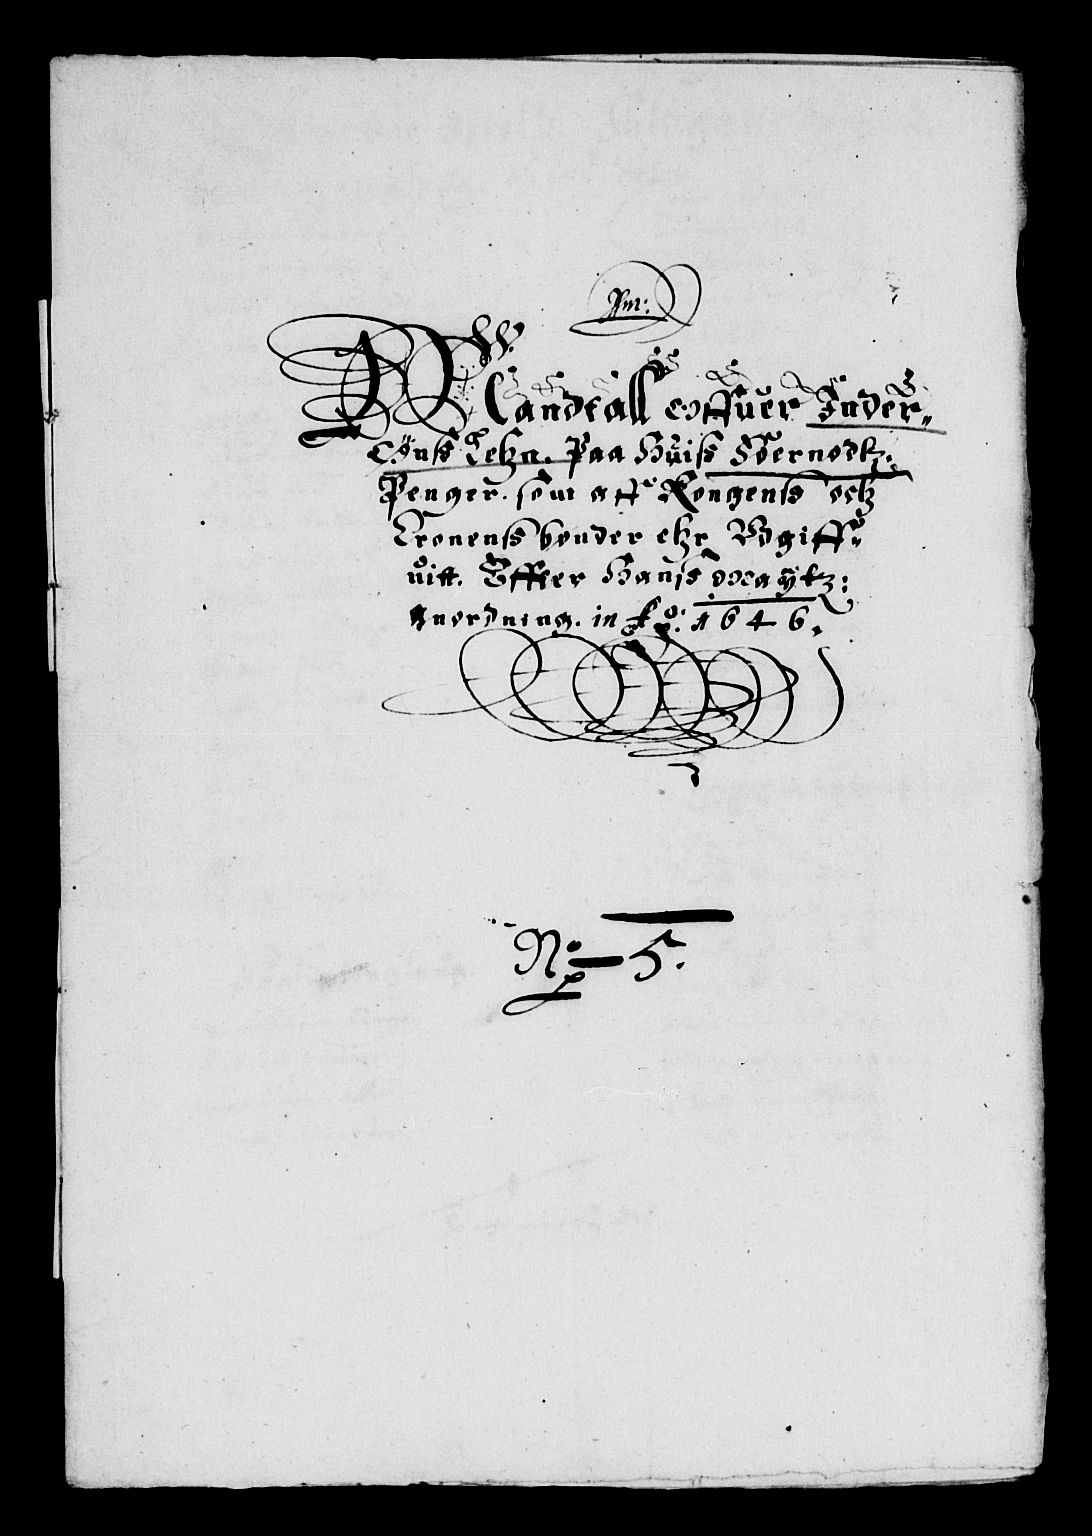 Mandtall offuer Inder-
Øenß Lehn. Paa Huiß Hoernødtz.
Penger. som aff Kongens och
Cronenß bønder ehr Vdgiff-
uitt. Effter Hanß Maytz:
Anordning. in Ao: 1646.
No 5.